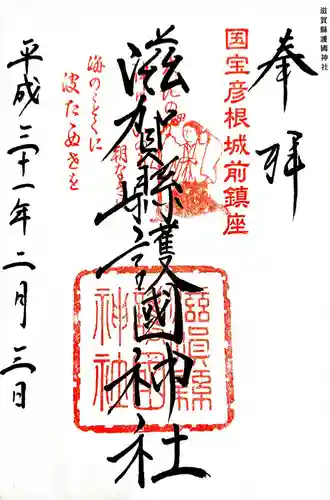 滋賀縣護國神社
奉拝
国宝彦根城前鎮座
滋賀縣護國神社
海のごとくに
波たゝぬせを
平成三十一年二月三日
滋賀縣
護國
神社